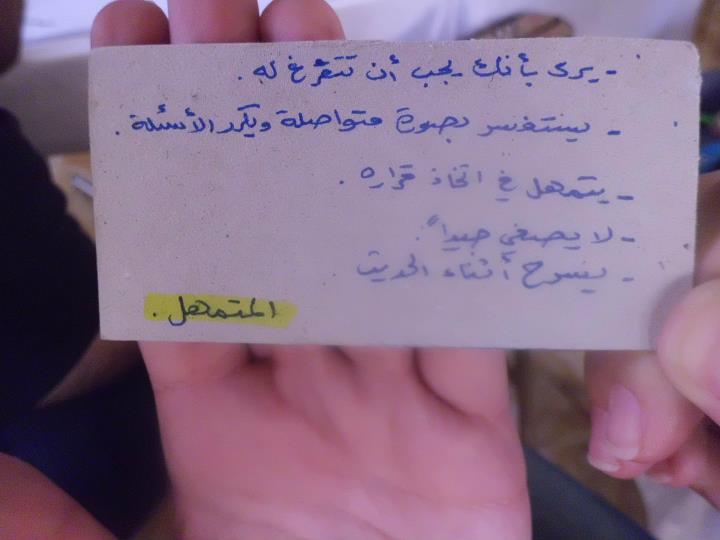 - يرى بأنك يجب أن تتفرغ له .
- يستفسر بصورة متواصلة ويكرر الأسئلة .
- يتمهل في اتخاذ قراره .
- لا يصغي جيداً .
- يسرح أثناء الحديث
المتمهل .